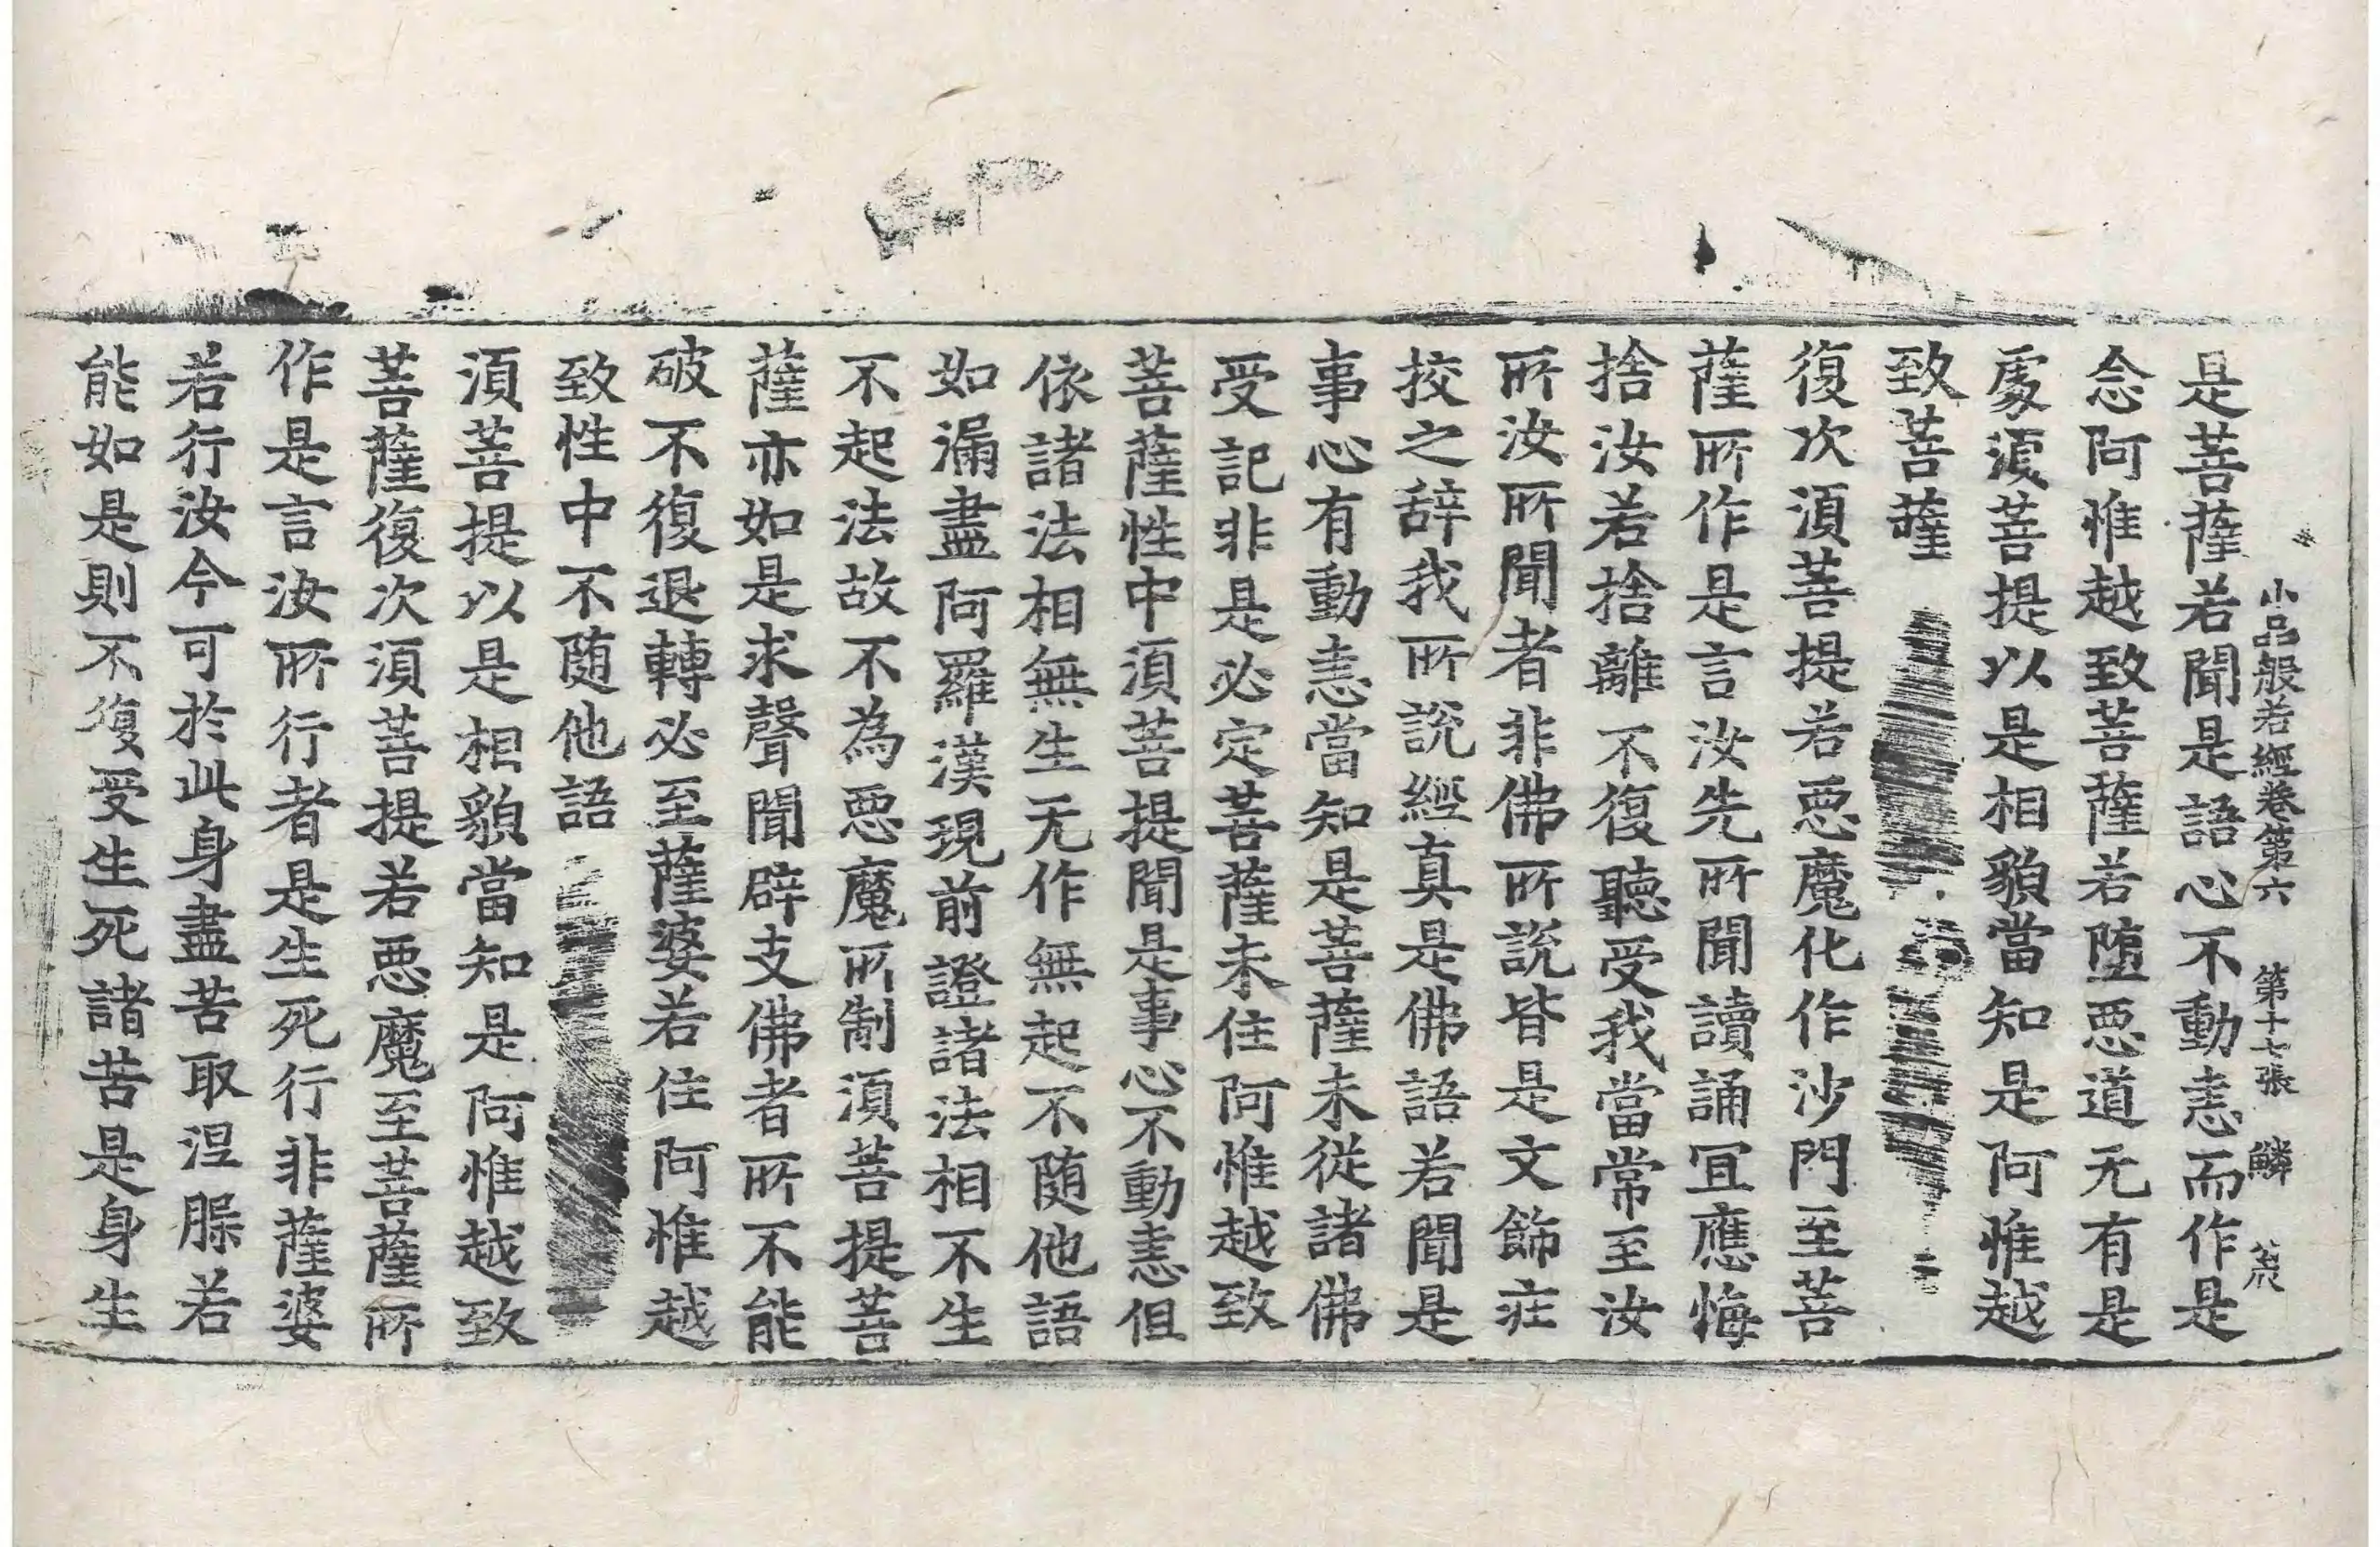 小品般若經卷第六 第十七張 鱗
是菩薩若聞是語心不動恚而作是
念阿惟越致菩薩若堕惡道无有是
處湏菩提以是相貌當知是阿惟越
致菩薩
復次湏菩提若惡魔化作沙門至菩
薩所作是言汝先所聞讀誦冝應悔
捨汝若捨離不復聽受我當常至汝
所汝所聞者非佛所說皆是文飾莊
挍之辞我所說經真是佛語若聞是
事心有動恚當知是菩薩未從諸佛
受記非是必定菩薩未住阿惟越致
菩薩性中湏菩提聞是事心不動恚但
依諸法相無生无作無起不随他語
如漏盡阿羅漢現前證諸法相不生
不起法故不為惡魔所制湏菩提菩
薩亦如是求聲聞辟支佛者所不能
破不復退轉必至薩婆若住阿惟越
致性中不随他語
湏菩提以是相貌當知是阿惟越致
菩薩復次湏菩提若惡魔至菩薩所
作是言汝所行者是生死行非薩婆
若行汝今可於此身盡苦取涅槃若
能如是則不復受生死諸苦是身生